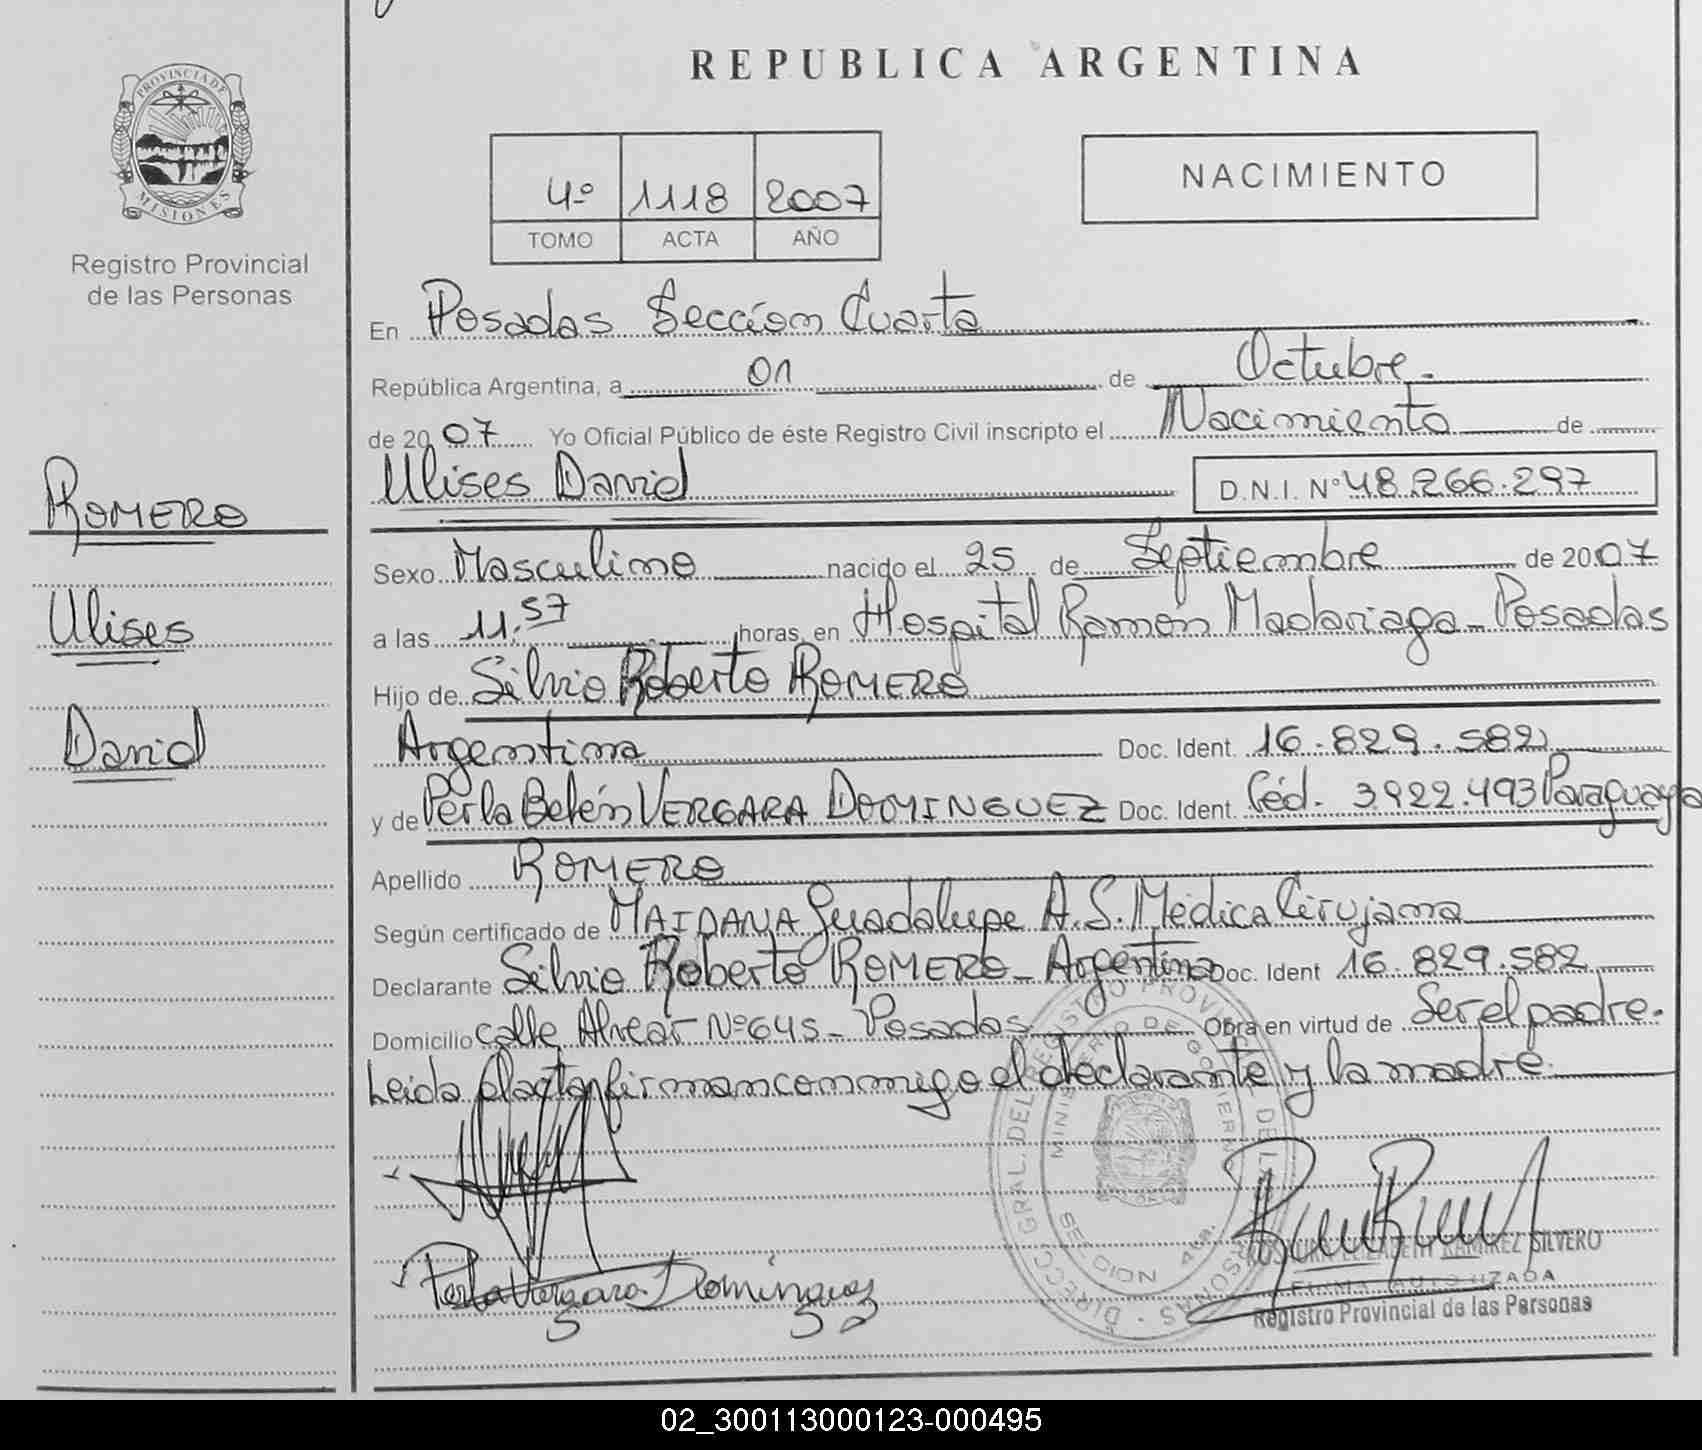 REPUBLICA ARGENTINA
PROVINCIA DE
MISIONES
Registro Provincial
de las Personas
4º 1118 2007
TOMO ACTA AÑO
NACIMIENTO
En Posadas Sección Cuarta
República Argentina, a 01 de Octubre.
de 2007 Yo Oficial Público de éste Registro Civil inscripto el Nacimiento de
Ulises David D.N.I. Nº 48.266.297
ROMERO
Ulises
David
Sexo Masculino nacido el 25 de Septiembre de 2007
a las 11,57 horas, en Hospital Ramón Madariaga - Posadas
Hijo de Silvio Roberto ROMERO
Argentina Doc. Ident. 16.829.582
y de Perla Belén VERGARA DOMINGUEZ Doc. Ident. Céd. 3922.493 Paraguaya
Apellido ROMERO
Según certificado de MAIDANA Guadalupe A.S. Médica Cirujana
Declarante Silvio Roberto ROMERO - Argentino Doc. Ident 16.829.582
Domicilio calle Alvear Nº 645 - Posadas Obra en virtud de Ser el padre.
Leida el acta firman conmigo el declarante y la madre.
DIRECC. GRAL. DEL REGISTRO PROVINCIAL DE LAS PERSONAS
MINISTERIO DE GOBIERNO
SECCION 4ta.
Perla Vergara Dominguez
ELIZABETH RAMIREZ SILVERO
FIRMA AUTORIZADA
Registro Provincial de las Personas
02_300113000123-000495